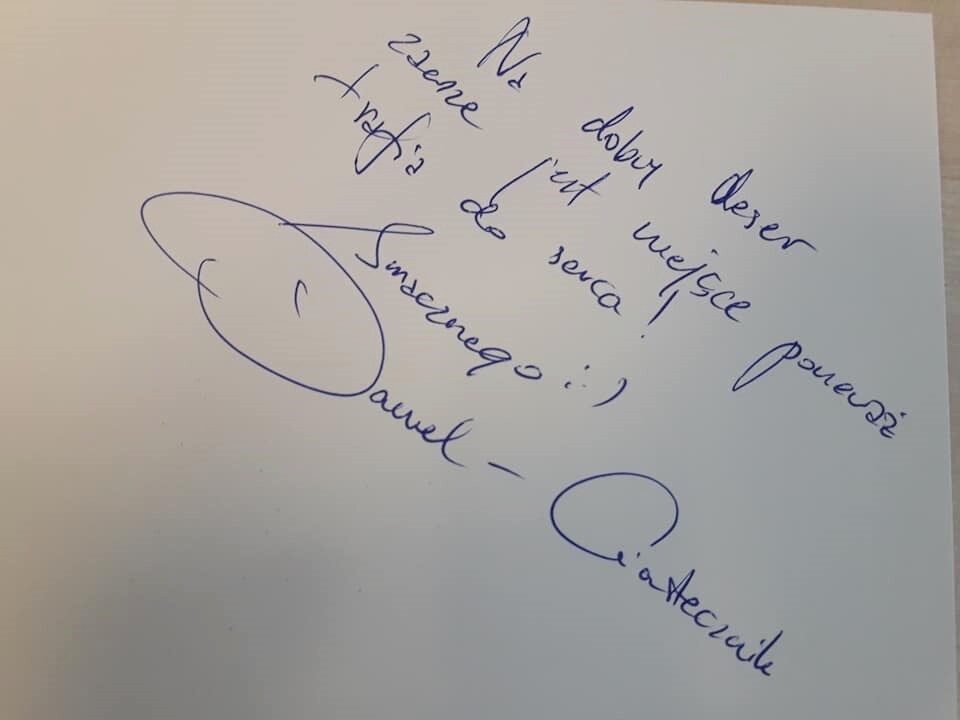 Na dobry deser
zawsze jest miejsce ponieważ
trafia do serca!
Smacznego :)
Paweł - Ciastecznik